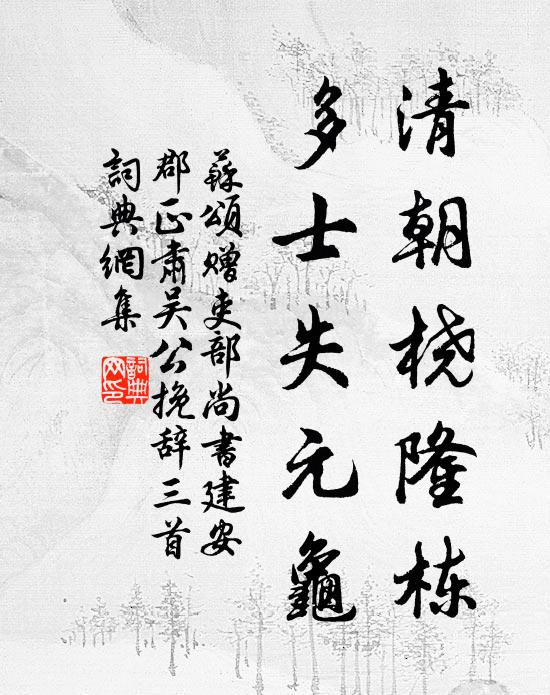 清朝桡隆栋
多士失元龜
蘇頌贈吏部尚書建安
郡正肅吴公挽辞三首
詞典網集
詞典网印